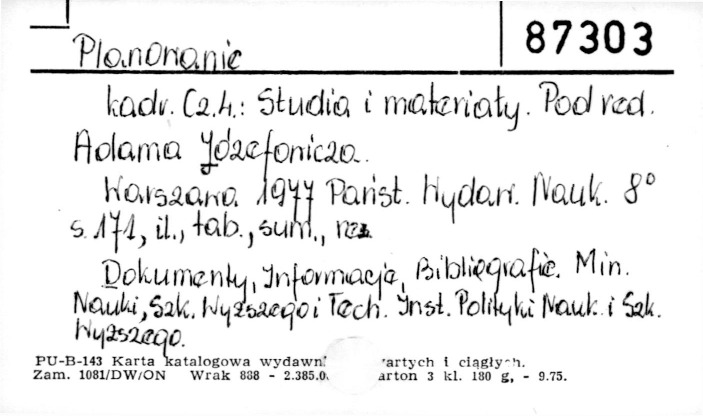 87303
Planowanie
kadr. Cz.4.: Studia i materiały. Pod red.
Adama Józefowicza.
Warszawa 1977 Państ. Wydaw. Nauk. 8°
s. 171, il., tab., sum., rez.
Dokumenty, Informacje, Bibliografie. Min.
Nauki, Szk. Wyższego i Tech. Inst. Polityki Nauk. i Szk.
Wyższego.
PU-B-143 Karta katalogowa wydawn artych i ciągłych.
Zam. 1081/DW/ON Wrak 888 - 2.385.0 arton 3 kl. 180 g, - 9.75.